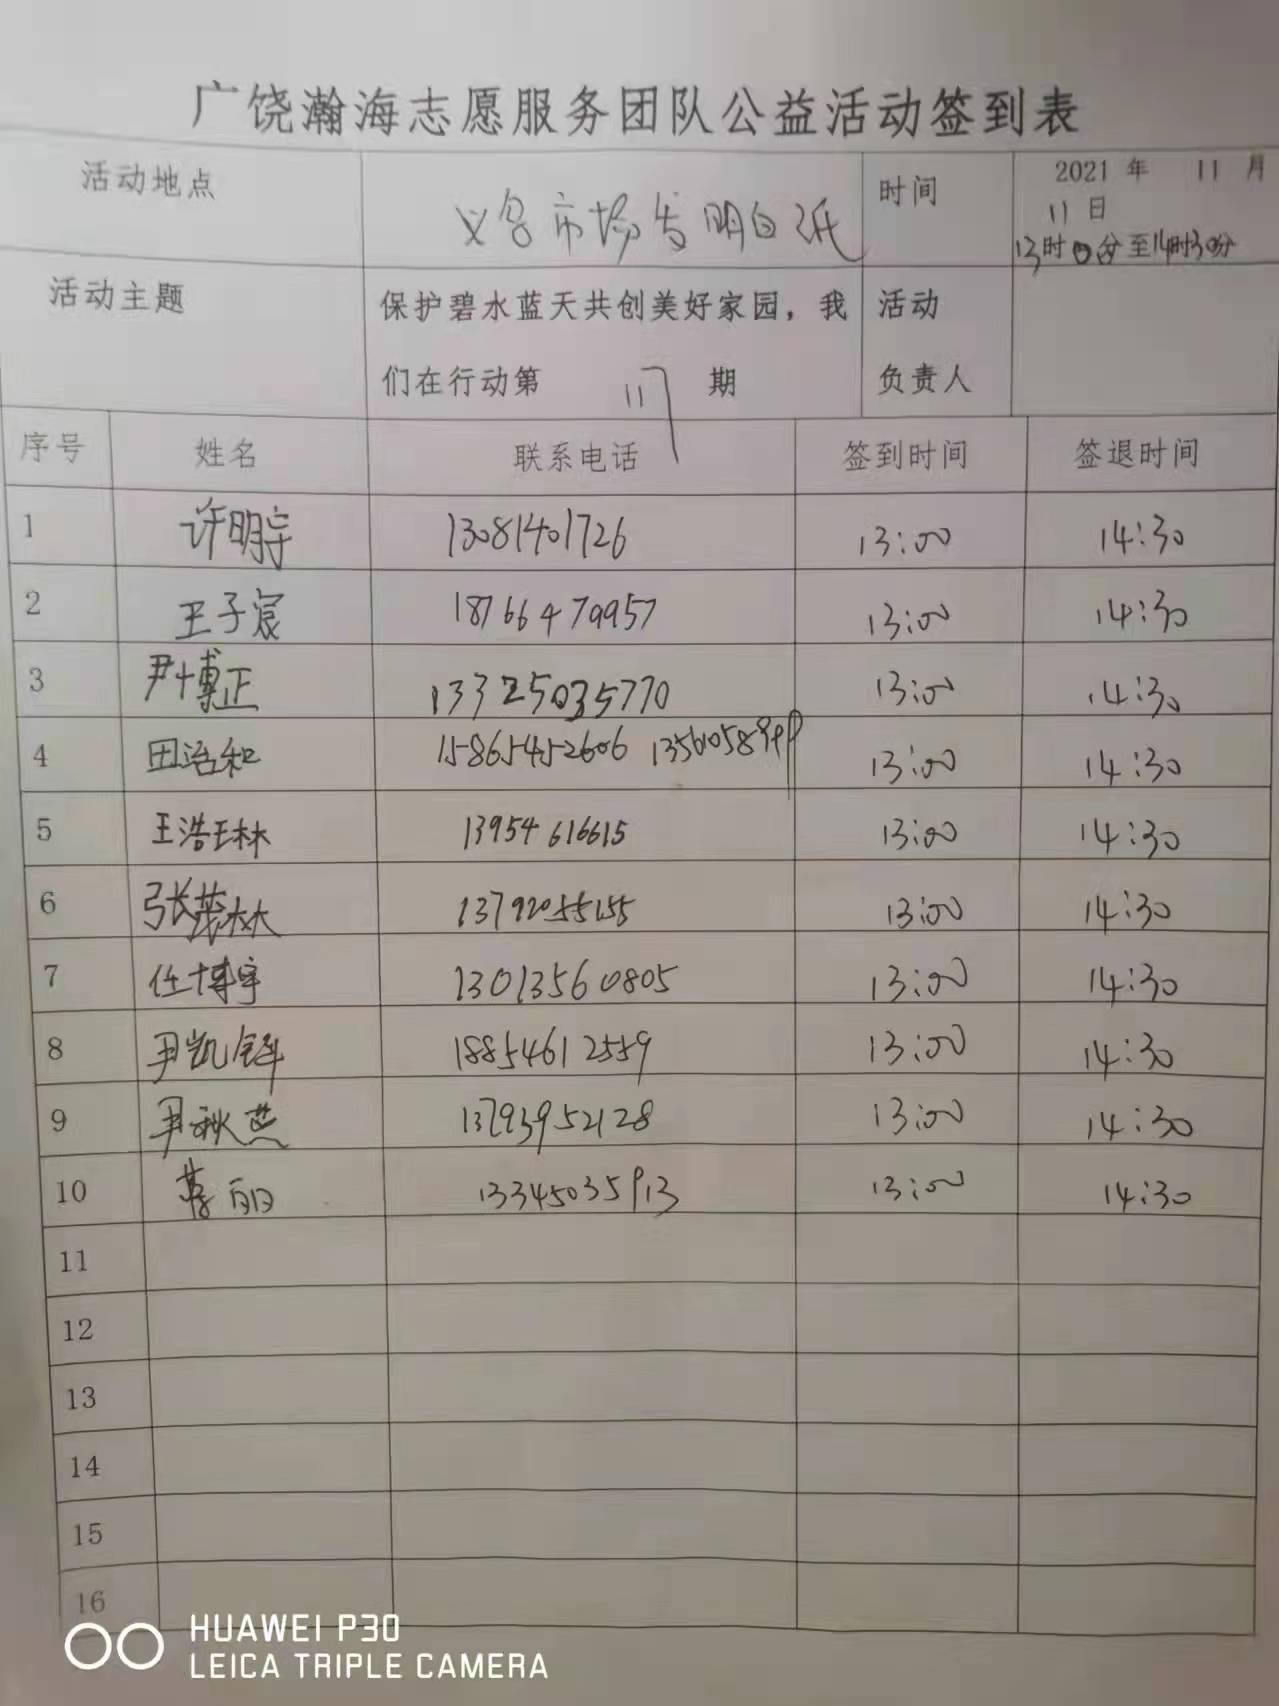 广饶瀚海志愿服务团队公益活动签到表
活动地点 义名市场发明白纸 时间 2021 年 11 月
11 日
13时00分至14时30分
活动主题 保护碧水蓝天共创美好家园，我 活动
们在行动第 117 期 负责人
序号 姓名 联系电话 签到时间 签退时间
1 许明宇 13081401726 13:00 14:30
2 王子宸 18766479957 13:00 14:30
3 尹博正 13325035770 13:00 14:30
4 田浩和 15865452606 13:00 14:30
5 王浩琳 13954616615 13:00 14:30
6 张茂林 13792055155 13:00 14:30
7 任博宇 13013560805 13:00 14:30
8 尹凯铎 18854612559 13:00 14:30
9 尹秋燕 13793952128 13:00 14:30
10 蒋丽 13345035913 13:00 14:30
11
12
13
14
15
16
HUAWEI P30
LEICA TRIPLE CAMERA